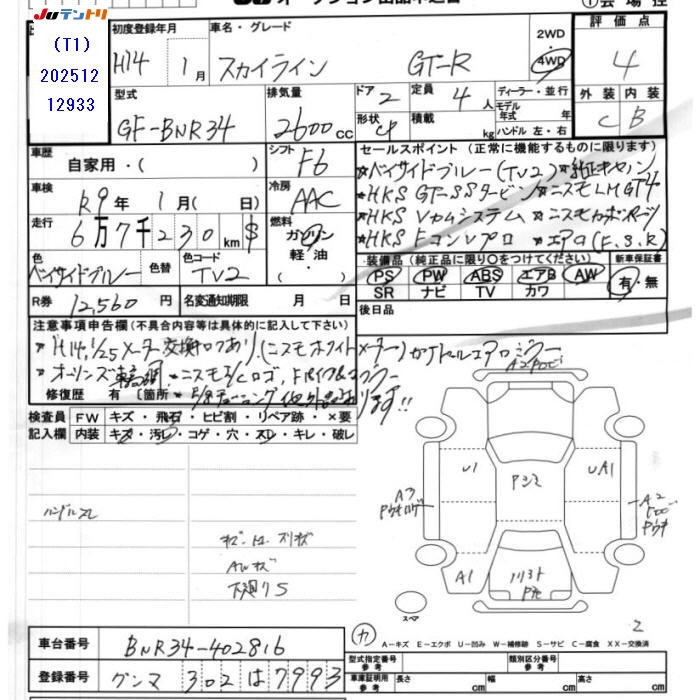 JUテントリ
オークション出品申込書
(T1)
202512
12933
初度登録年月
H14 1月
車名・グレード
スカイライン GT-R
2WD
4WD
評価点
4
外装 内装
C B
型式
GF-BNR34
排気量
2600cc
ドア 2
形状 CP
定員 4人
積載 kg
ディーラー・並行
モデル年式 年
ハンドル 左・右
車歴
自家用・( )
シフト F6
車検
R9年 1月( 日)
冷房
AAC
走行
6万7千230km $
燃料
ガソリン
軽油
色
ベイサイドブルー
色替
色コード
TV2
R券 12,560円
名変通知期限 月 日
セールスポイント(正常に機能するものに限ります)
*ベイサイドブルー(TV2)*純正キセノン
*HKS GT-SSタービン*ニスモLMGT4
*HKS Vカムシステム *ニスモカーボンパーツ
*HKS FコンVプロ *エアロ(F.S.R)
装備品(純正品に限り○をつけてください)
PS PW ABS エアB AW
SR ナビ TV カワ
新車保証書
有・無
後日品
注意事項申告欄(不具合内容等は具体的に記入して下さい)
*H14,1/25メーター交換ログあり(ニスモホワイトメーター)ガナドールエアロミラー
*オーリンズ車高調 *ニスモI/Cロゴ,
修復歴 有〔箇所
検査員記入欄
FW キズ・飛石・ヒビ割・リペア跡・×要
内装 キズ・汚レ・コゲ・穴・スレ・キレ・破レ
ハンドルスレ
AWキズ
下廻りS
U1
UA1
A3
A2
A1
スペア
カ
2
A-キズ E-エクボ U-凹み W-補修跡 S-サビ C-腐食 XX-交換済
車台番号 BNR34-402816
登録番号 グンマ 302 は 7993
型式指定番号 参考
類別区分番号 参考
車庫証明用 参考 長さ cm 幅 cm 高さ cm